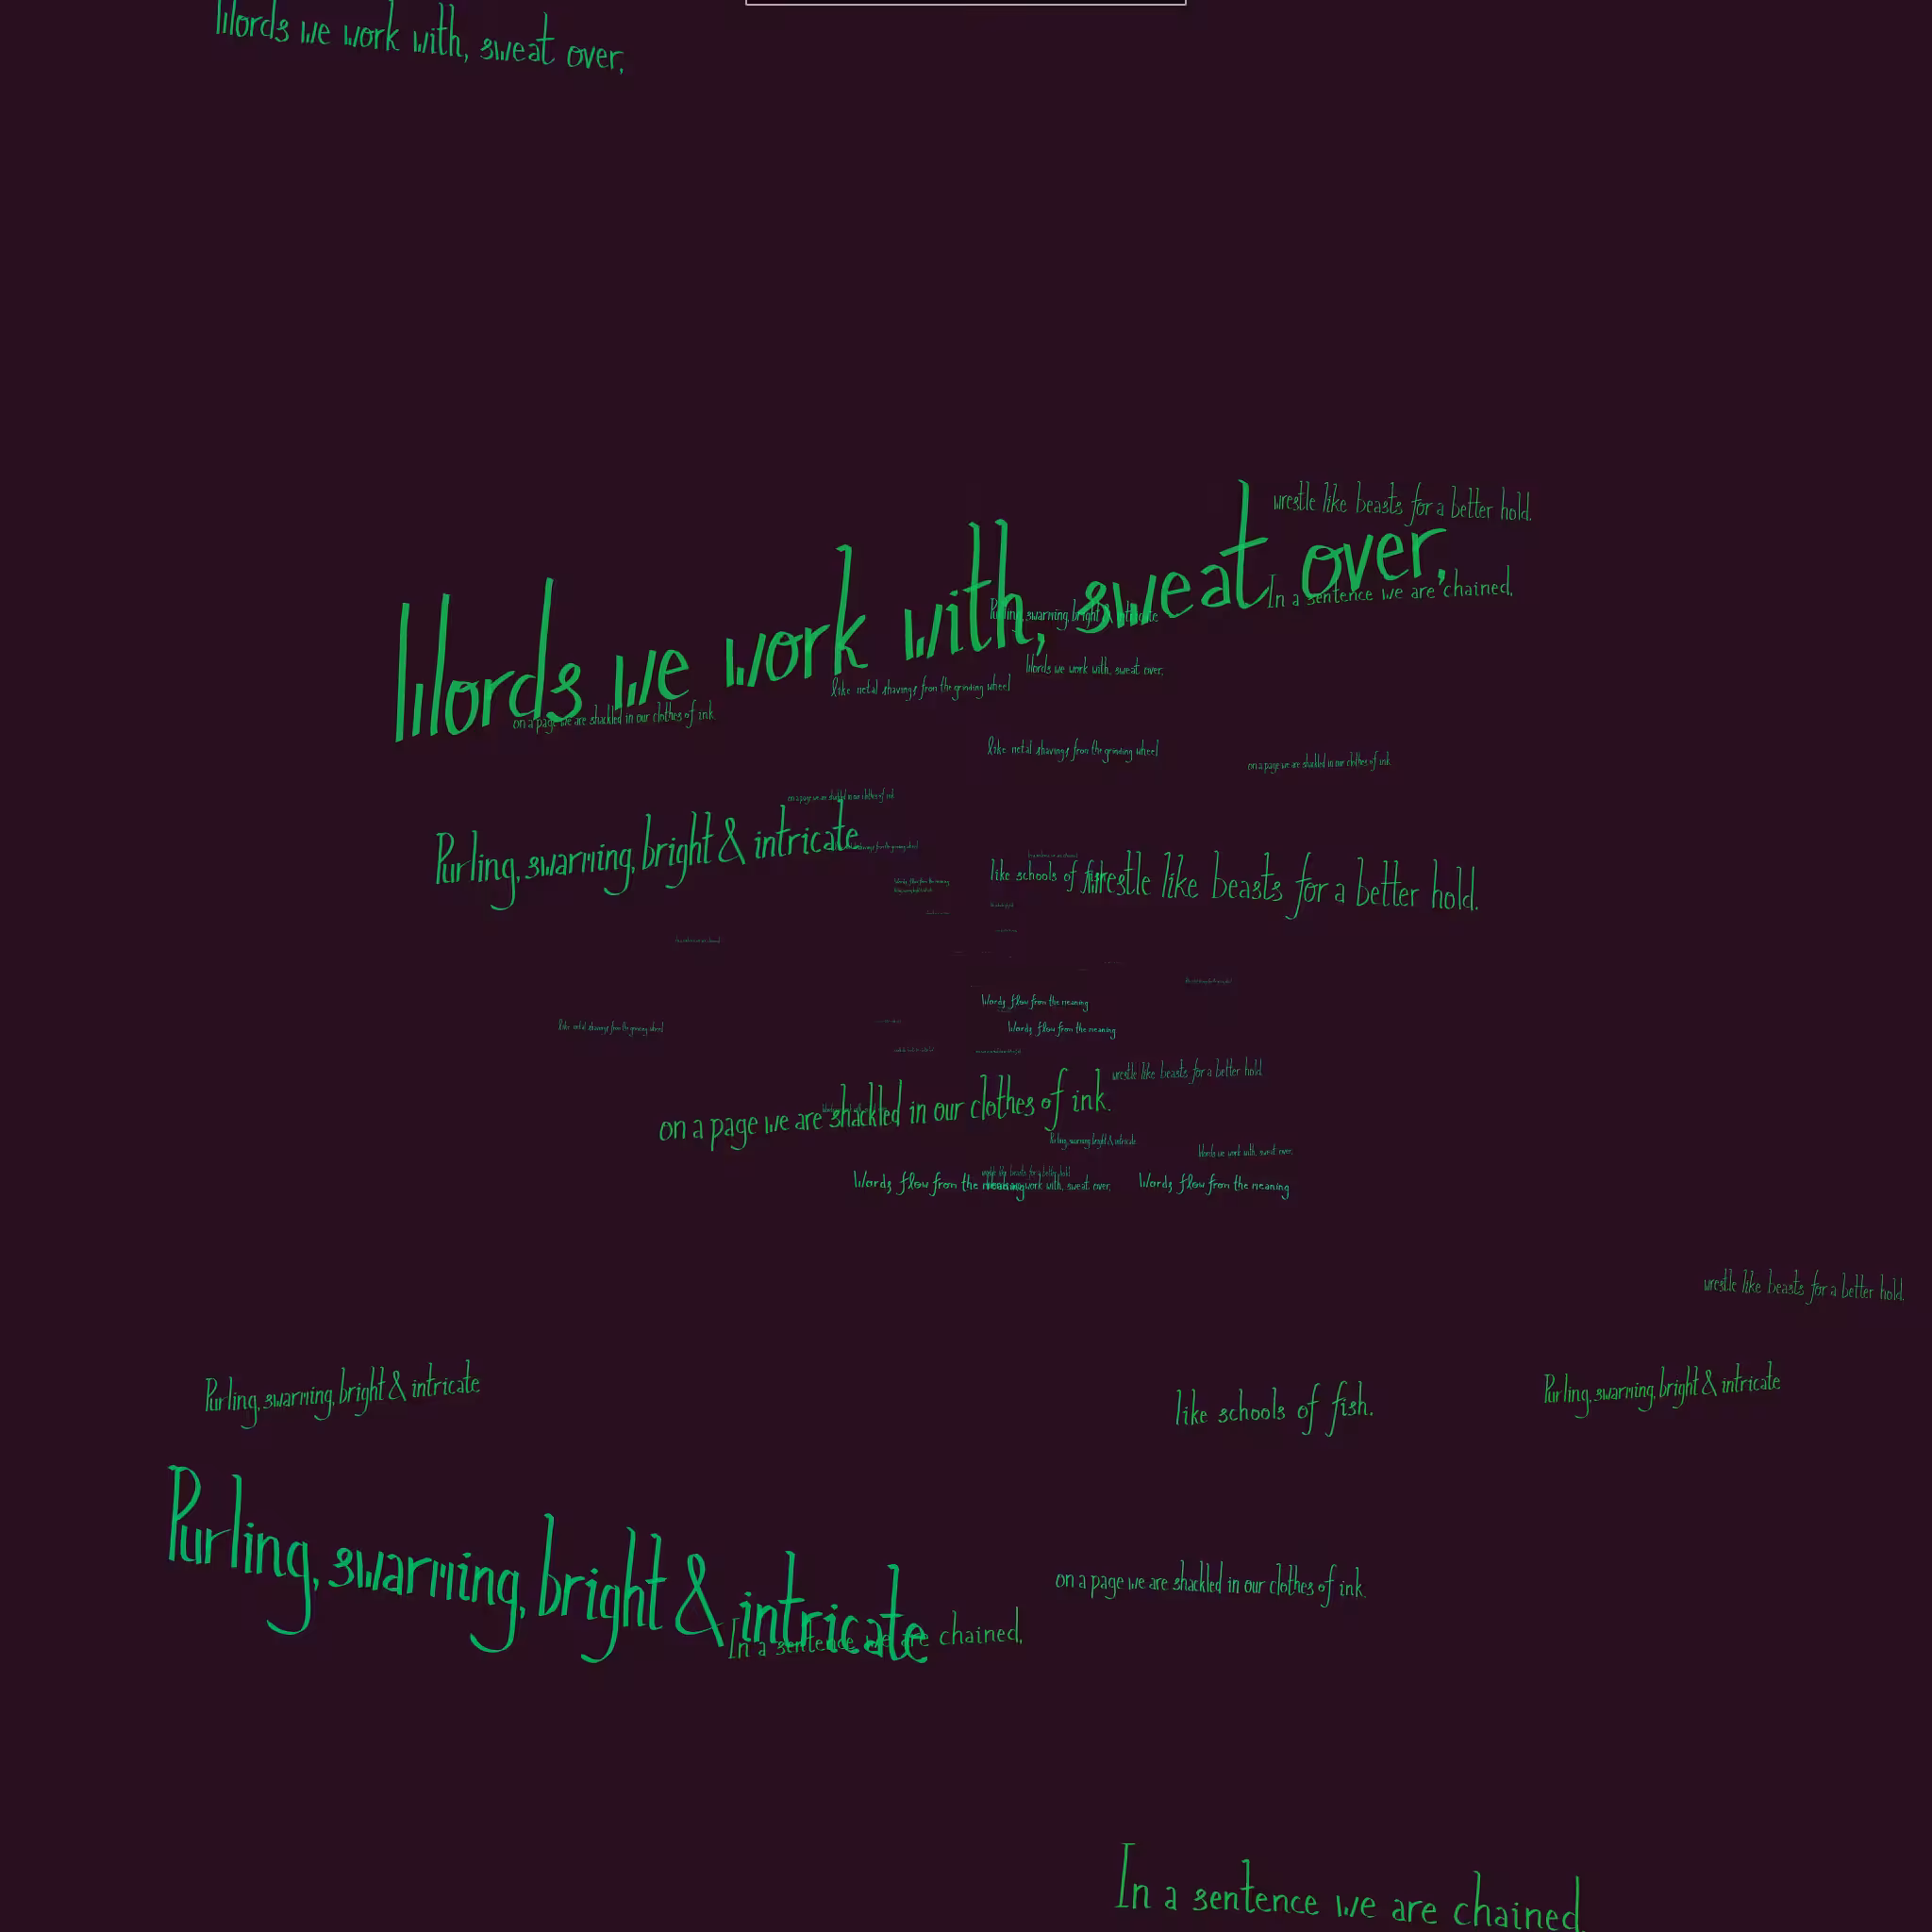 Words we work with, sweat over,
wrestle like beasts for a better hold.
Words we work with, sweat over,
In a sentence we are chained,
Purling, swarming, bright & intricate
Words we work with, sweat over,
like metal shavings from the grinding wheel
on a page we are shackled in our clothes of ink.
like metal shavings from the grinding wheel
on a page we are shackled in our clothes of ink.
on a page we are shackled in our clothes of ink.
Purling, swarming, bright & intricate
from the grinding wheel
like schools of fish.
wrestle like beasts for a better hold.
Words flow from the meaning
Words flow from the meaning
like metal shavings from the grinding wheel
Words flow from the meaning
wrestle like beasts for a better hold.
on a page we are shackled in our clothes of ink.
Purling, swarming, bright & intricate
Words we work with, sweat over,
wrestle like beasts for a better hold.
Words flow from the meaning
work with, sweat over,
Words flow from the meaning
wrestle like beasts for a better hold.
Purling, swarming, bright & intricate
like schools of fish.
Purling, swarming, bright & intricate
Purling, swarming, bright & intricate
on a page we are shackled in our clothes of ink.
In a sentence we are chained,
In a sentence we are chained,